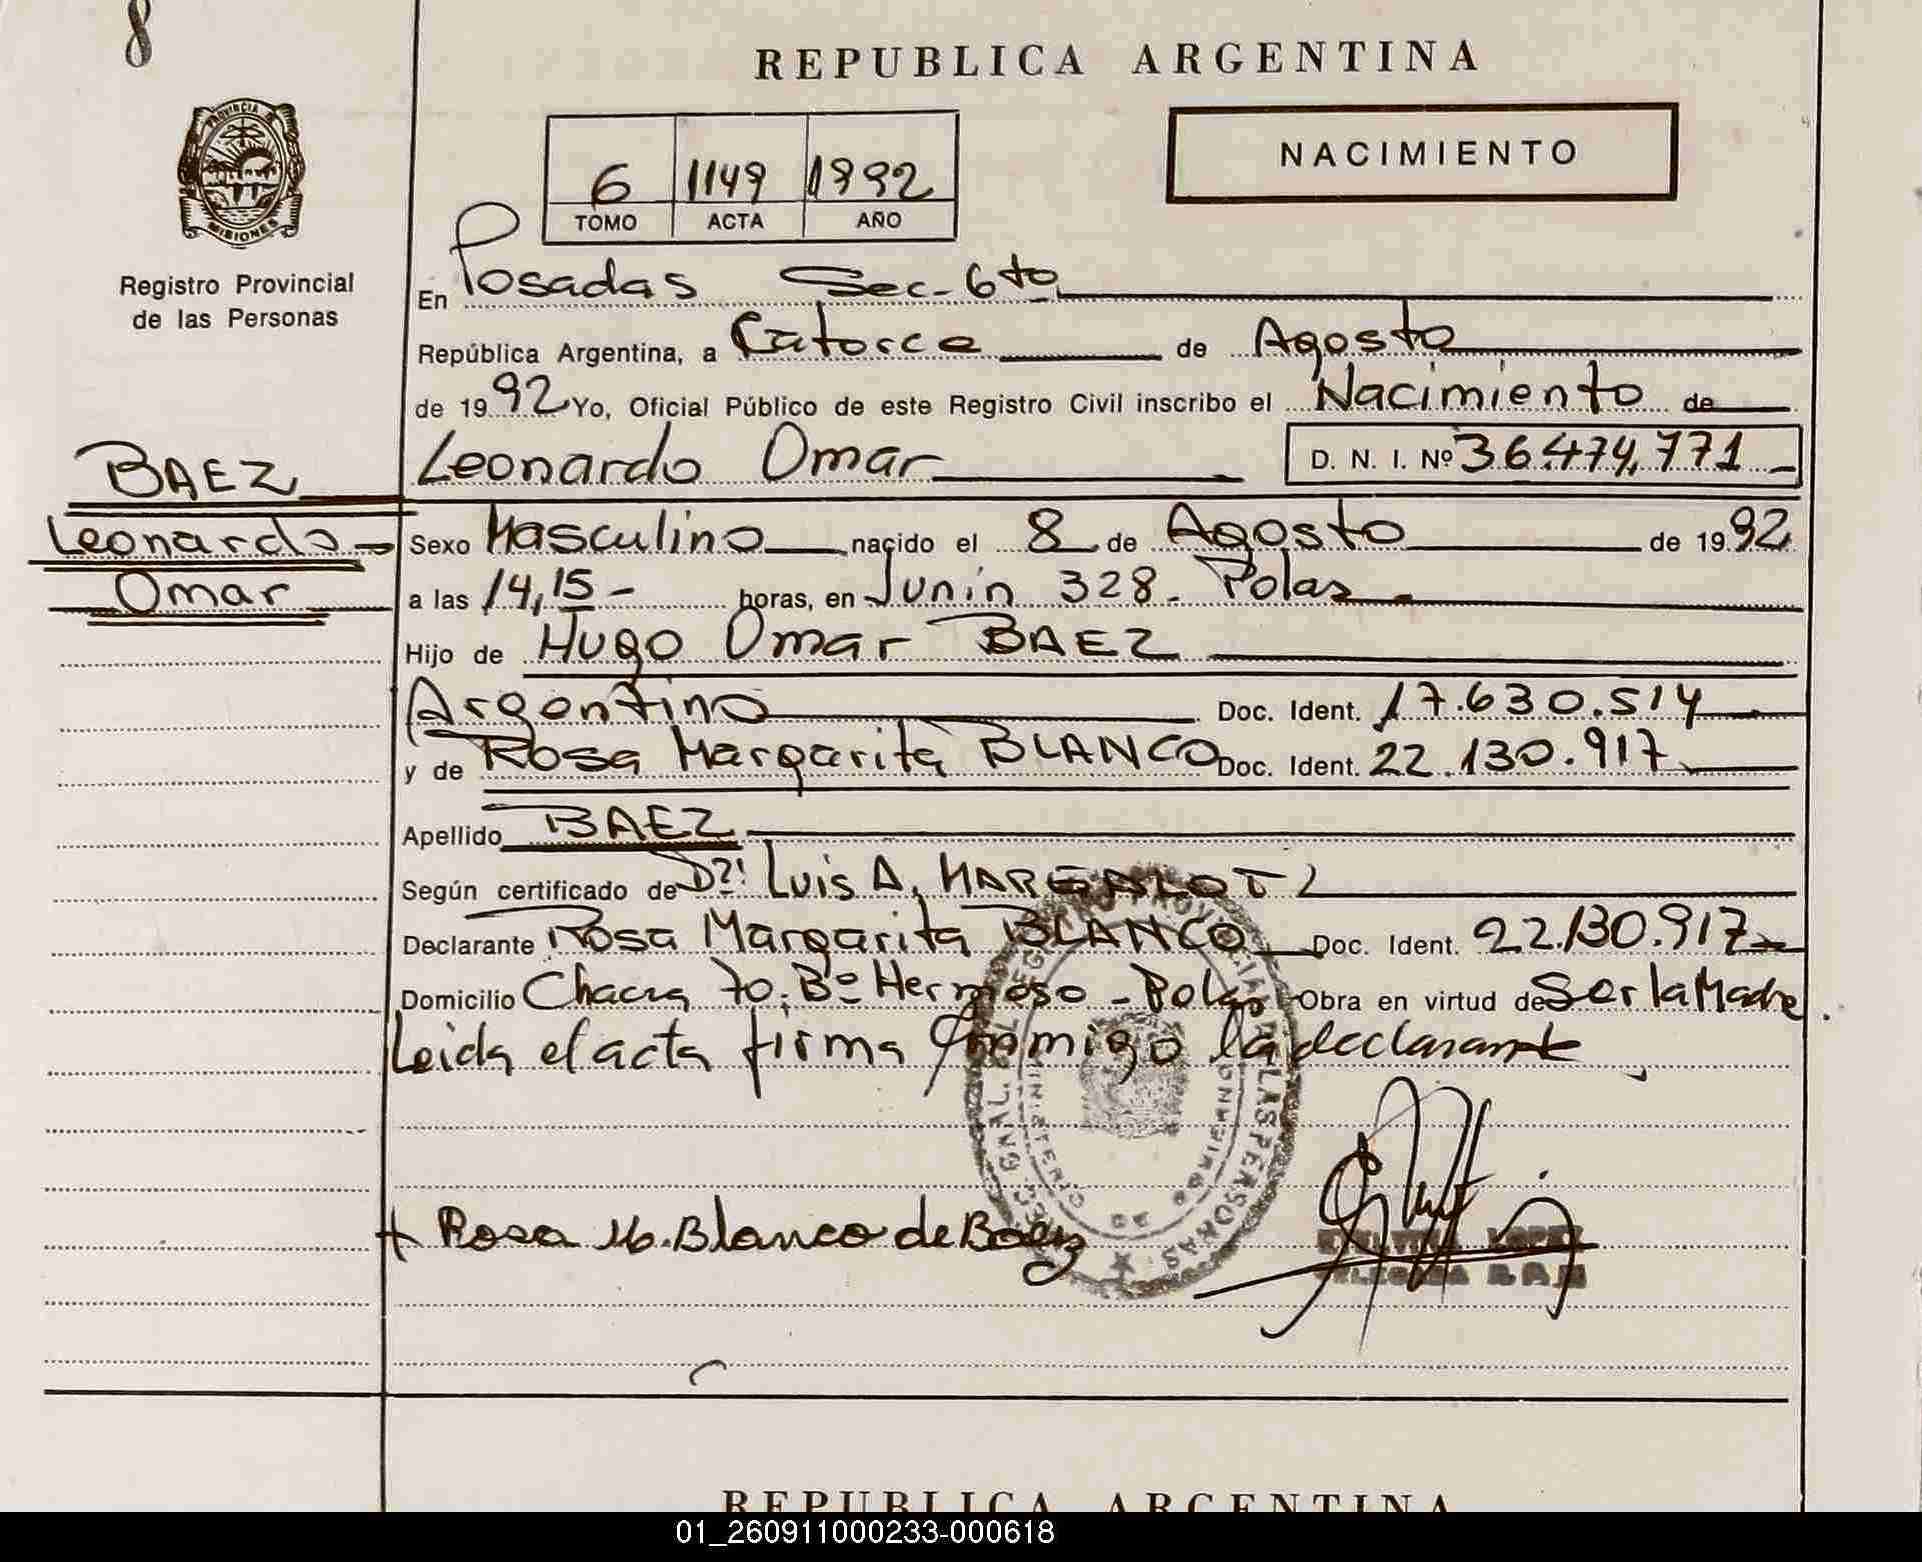 8
REPUBLICA ARGENTINA
PROVINCIA DE
MISIONES
Registro Provincial
de las Personas
6 1149 1992
TOMO ACTA AÑO
NACIMIENTO
En Posadas Sec-6to
República Argentina, a Catorce de Agosto
de 1992 Yo, Oficial Público de este Registro Civil inscribo el Nacimiento de
BAEZ
Leonardo
Omar
Leonardo Omar D. N. I. Nº 36.474.771
Sexo Masculino nacido el 8 de Agosto de 1992
a las 14,15 horas, en Junin 328 - Pdas
Hijo de Hugo Omar BAEZ
Argentino Doc. Ident. 17.630.514
y de Rosa Margarita BLANCO Doc. Ident. 22.130.917
Apellido BAEZ
Según certificado de Dr: Luis A. MARGALOT
Declarante Rosa Margarita BLANCO Doc. Ident. 22.130.917
Domicilio Chacra 70. Bº Hermoso - Pdas Obra en virtud de Ser la Madre.
Leida el acta firma conmigo la declarante
+ Rosa M. Blanco de Baez
LOPEZ
REPUBLICA ARGENTINA
01_260911000233-000618